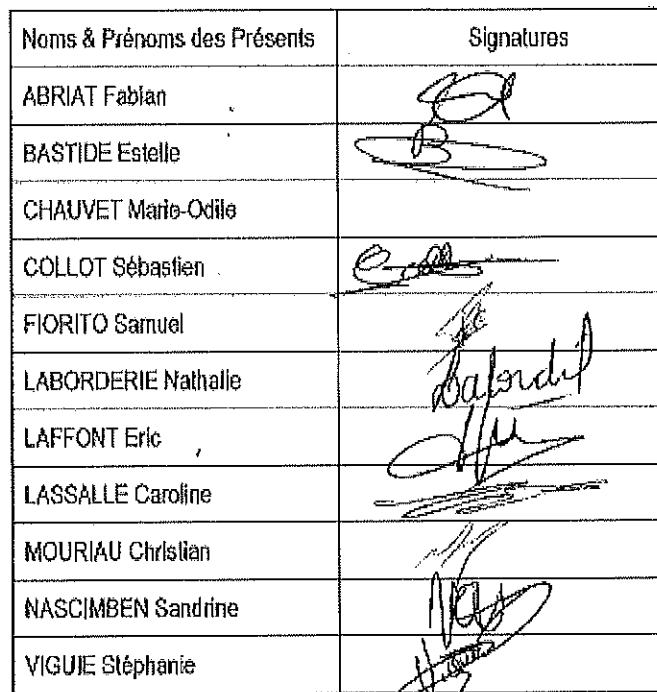 Noms & Prénoms des Présents Signatures
ABRIAT Fabian
BASTIDE Estelle
CHAUVET Marie-Odile
COLLOT Sébastien
FIORITO Samuel
LABORDERIE Nathalie
LAFFONT Eric
LASSALLE Caroline
MOURIAU Christian
NASCIMBEN Sandrine
VIGUIE Stéphanie